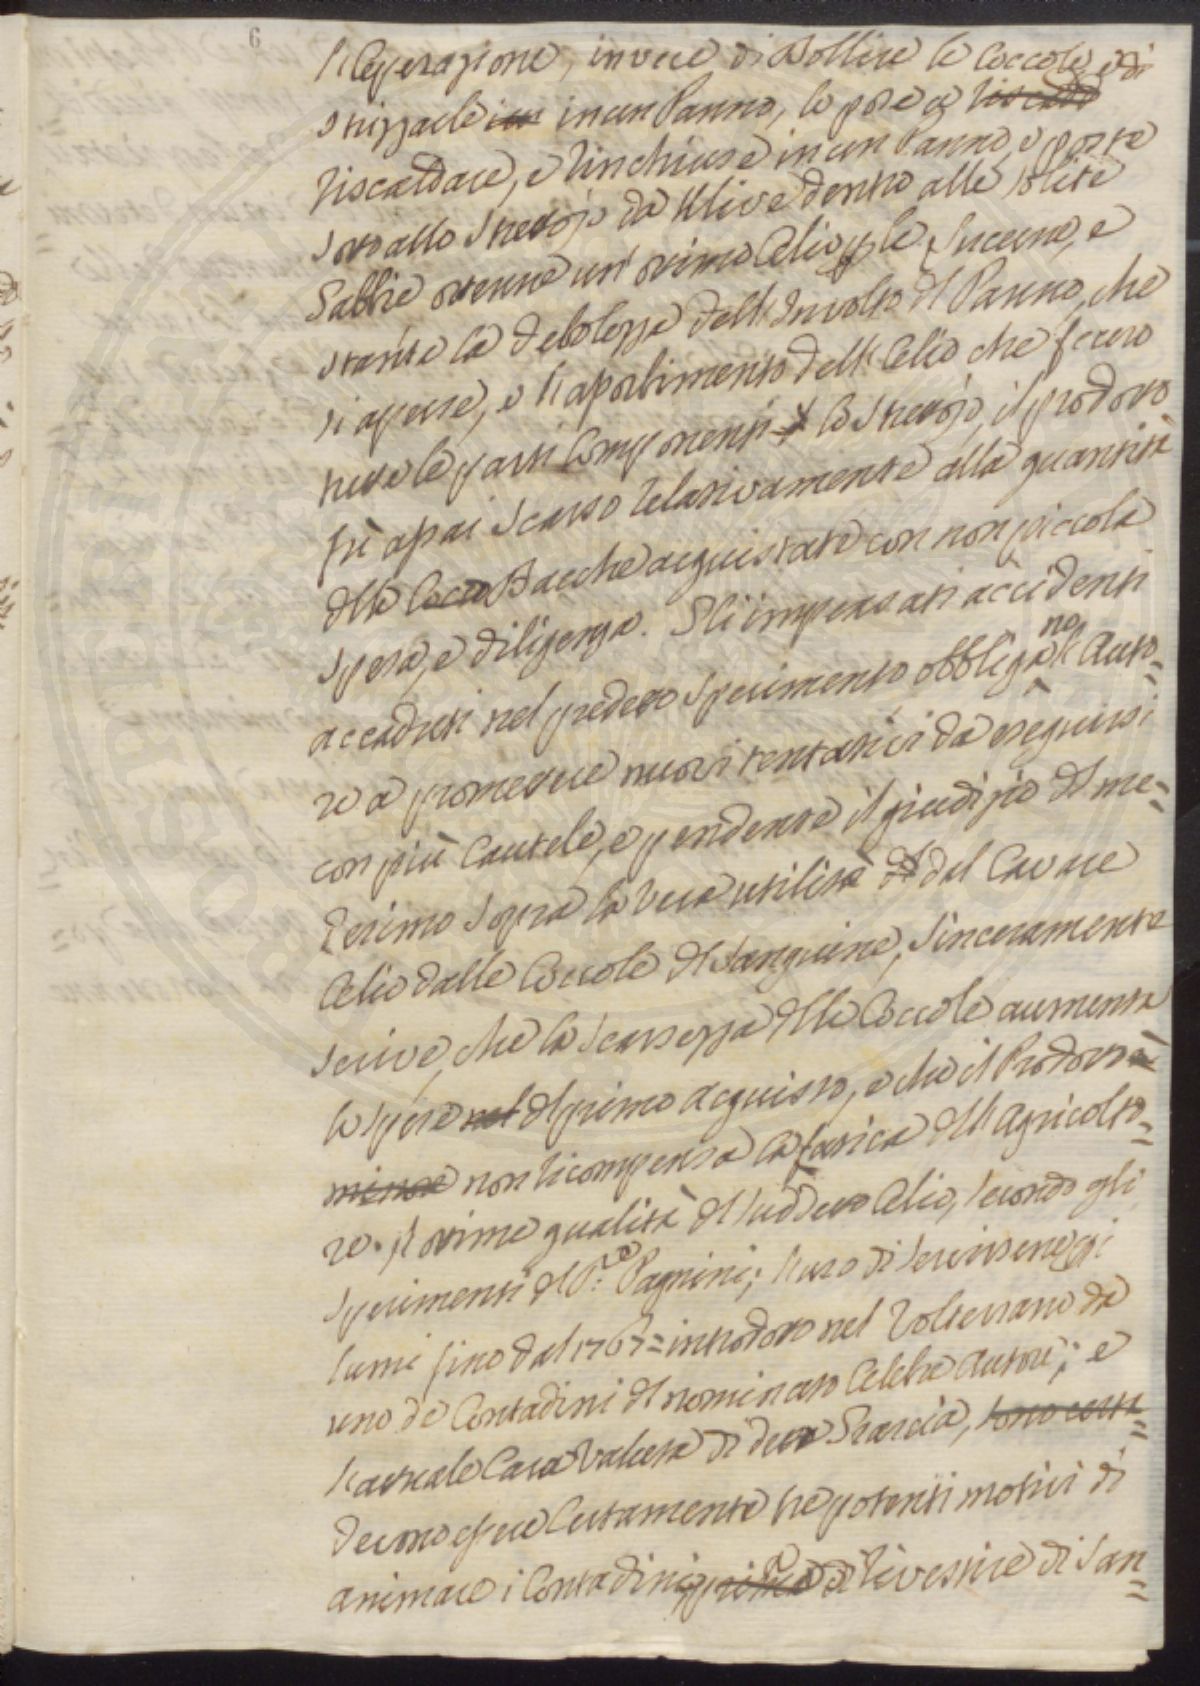 6
l'Operazione, invece di Bollire le Coccole, e di
strizzarle in un Panno, le pose a
riscaldare, e rinchiuse in un Panno, e poste
sotto allo Strettojo da Ulive dentro alle solite
Gabbie ottenne un' ottimo Olio p le Lucerne, e
stante la debolezza dell'Involto dl Panno, che
si aperse, e l'assorbimento dell'Olio che fecero
tutte le parti Componenti lo Strettojo, il prodotto
fù assai scarso relativamente alla quantità
dlle Bacche acquistate con non piccola
spesa, e diligenza. Gl'impensati accidenti
accaduti nel predetto sperimento, obbligano l'Auto=
re a promettere nuovi tentativi da eseguirsi
con più Cautele, e pendente il giudizio dl me=
desimo sopra la vera utilità dal Cavare
Olio dalle Coccole dl Sanguine, sinceramente
scrive, che la scarsezza dlle Coccole aumenta
le spese dl primo acquisto, e che il Prodotto
non ricompensa la fatica dll'Agricolto=
re. L'ottima qualità dl suddetto Olio, secondo gli
sperimenti dl Pagnini; l'uso di servirsene p i
lumi fino dal 1767= introdotto nel Volterrano da
uno de Contadini dl nominato Celebre Autore; e
l'attuale Cara Valuta di detta Grascia,
devono essere Certamente tre potenti motivi di
animare i Contadini di rivestire di San=